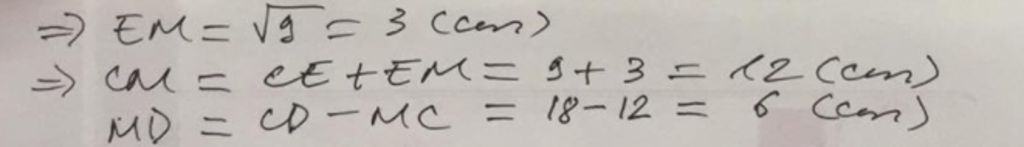 ⇒ EM = √9 = 3 (cm)
⇒ CM = CE + EM = 9 + 3 = 12 (cm)
MD = CD - MC = 18 - 12 = 6 (cm)